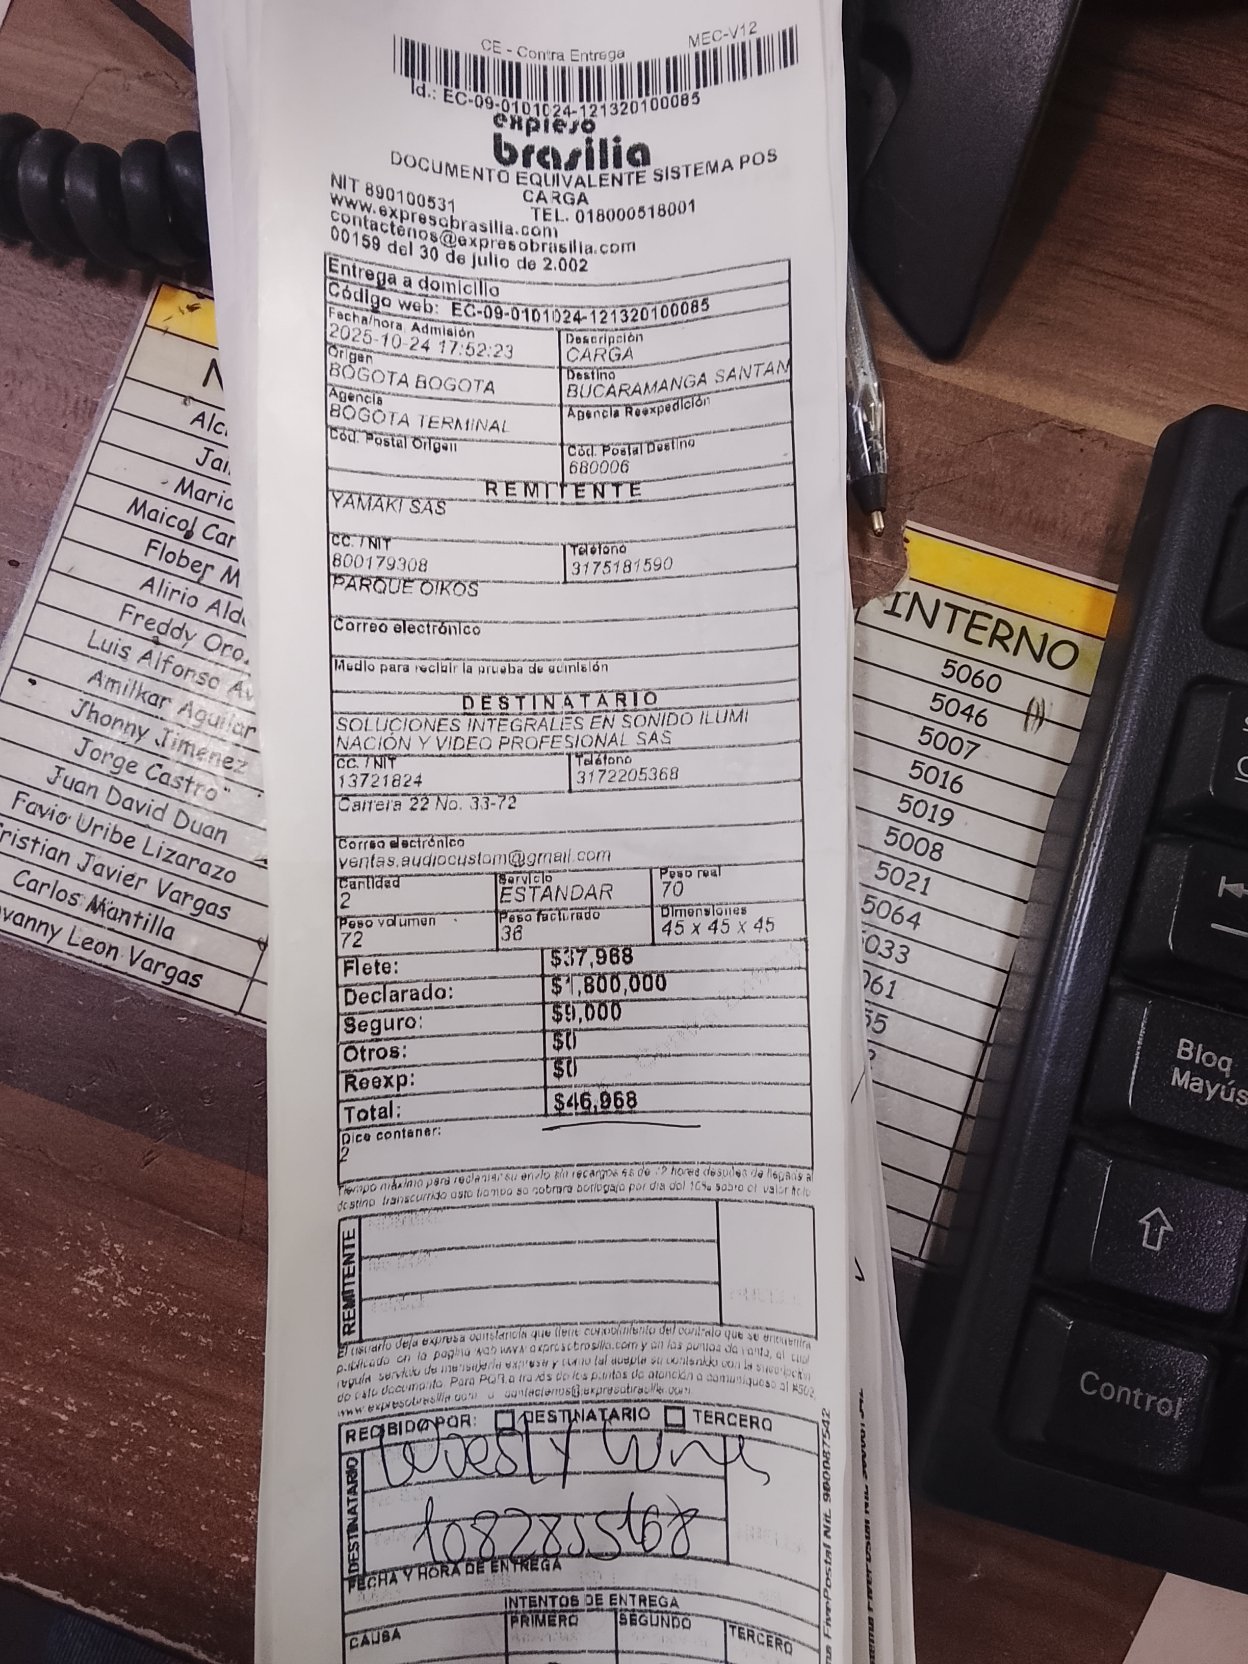 CE - Contra Entrega MEC-V12
Id.: EC-09-0101024-121320100085
expreso
brasilia
DOCUMENTO EQUIVALENTE SISTEMA POS
CARGA
NIT 890100531 TEL. 018000518001
www.expresobrasilia.com
contactenos@expresobrasilia.com
00159 del 30 de julio de 2.002
Entrega a domicilio
Código web: EC-09-0101024-121320100085
Fecha/hora Admisión
2025-10-24 17:52:23
Descripción
CARGA
Origen
BOGOTA BOGOTA
Destino
BUCARAMANGA SANTAN
Agencia
BOGOTA TERMINAL
Agencia Reexpedición
Cód. Postal Origen
Cód. Postal Destino
680006
REMITENTE
YAMAKI SAS
CC. / NIT
800179308
Teléfono
3175181590
PARQUE OIKOS
Correo electrónico
Medio para recibir la prueba de admisión
DESTINATARIO
SOLUCIONES INTEGRALES EN SONIDO ILUMI
NACIÓN Y VIDEO PROFESIONAL SAS
CC. / NIT
13721824
Teléfono
3172205368
Carrera 22 No. 33-72
Correo electrónico
ventas.audiocustom@gmail.com
Cantidad
2
Servicio
ESTANDAR
Peso real
70
Peso volumen
72
Peso facturado
36
Dimensiones
45 x 45 x 45
Flete: $37,968
Declarado: $1,800,000
Seguro: $9,000
Otros: $0
Reexp: $0
Total: $46,968
Dice contener:
2
Tiempo máximo para reclamar su envío sin recargos es de 72 horas después de llegada al
destino, transcurrido este tiempo se cobrara bodegaje por día del 10% sobre el valor flete
REMITENTE
El usuario deja expresa constancia que tiene conocimiento del contrato que se encuentra
publicado en la pagina web www.expresobrasilia.com y en los puntos de venta, el cual
regula servicio de mensajería expresa y como tal acepta su contenido con la suscripción
de este documento. Para PQR a través de los puntos de atención o comuníquese al #502,
www.expresobrasilia.com o contactenos@expresobrasilia.com.
RECIBIDO POR: DESTINATARIO TERCERO
DESTINATARIO
1082855168
FECHA Y HORA DE ENTREGA
INTENTOS DE ENTREGA
CAUSA PRIMERO SEGUNDO TERCERO
FivePostal Nit. 900087542
Jorge Castro
Juan David Duan
Favio Uribe Lizarazo
Cristian Javier Vargas
Carlos Mantilla
Leon Vargas
Maicol Car
Flober M
Alirio Ald
Freddy Oro
Luis Alfonso Av
Amilkar Aguilar
Jhonny Jimenez
INTERNO
5060
5046
5007
5016
5019
5008
5021
5064
5033
Bloq
Mayús
Control